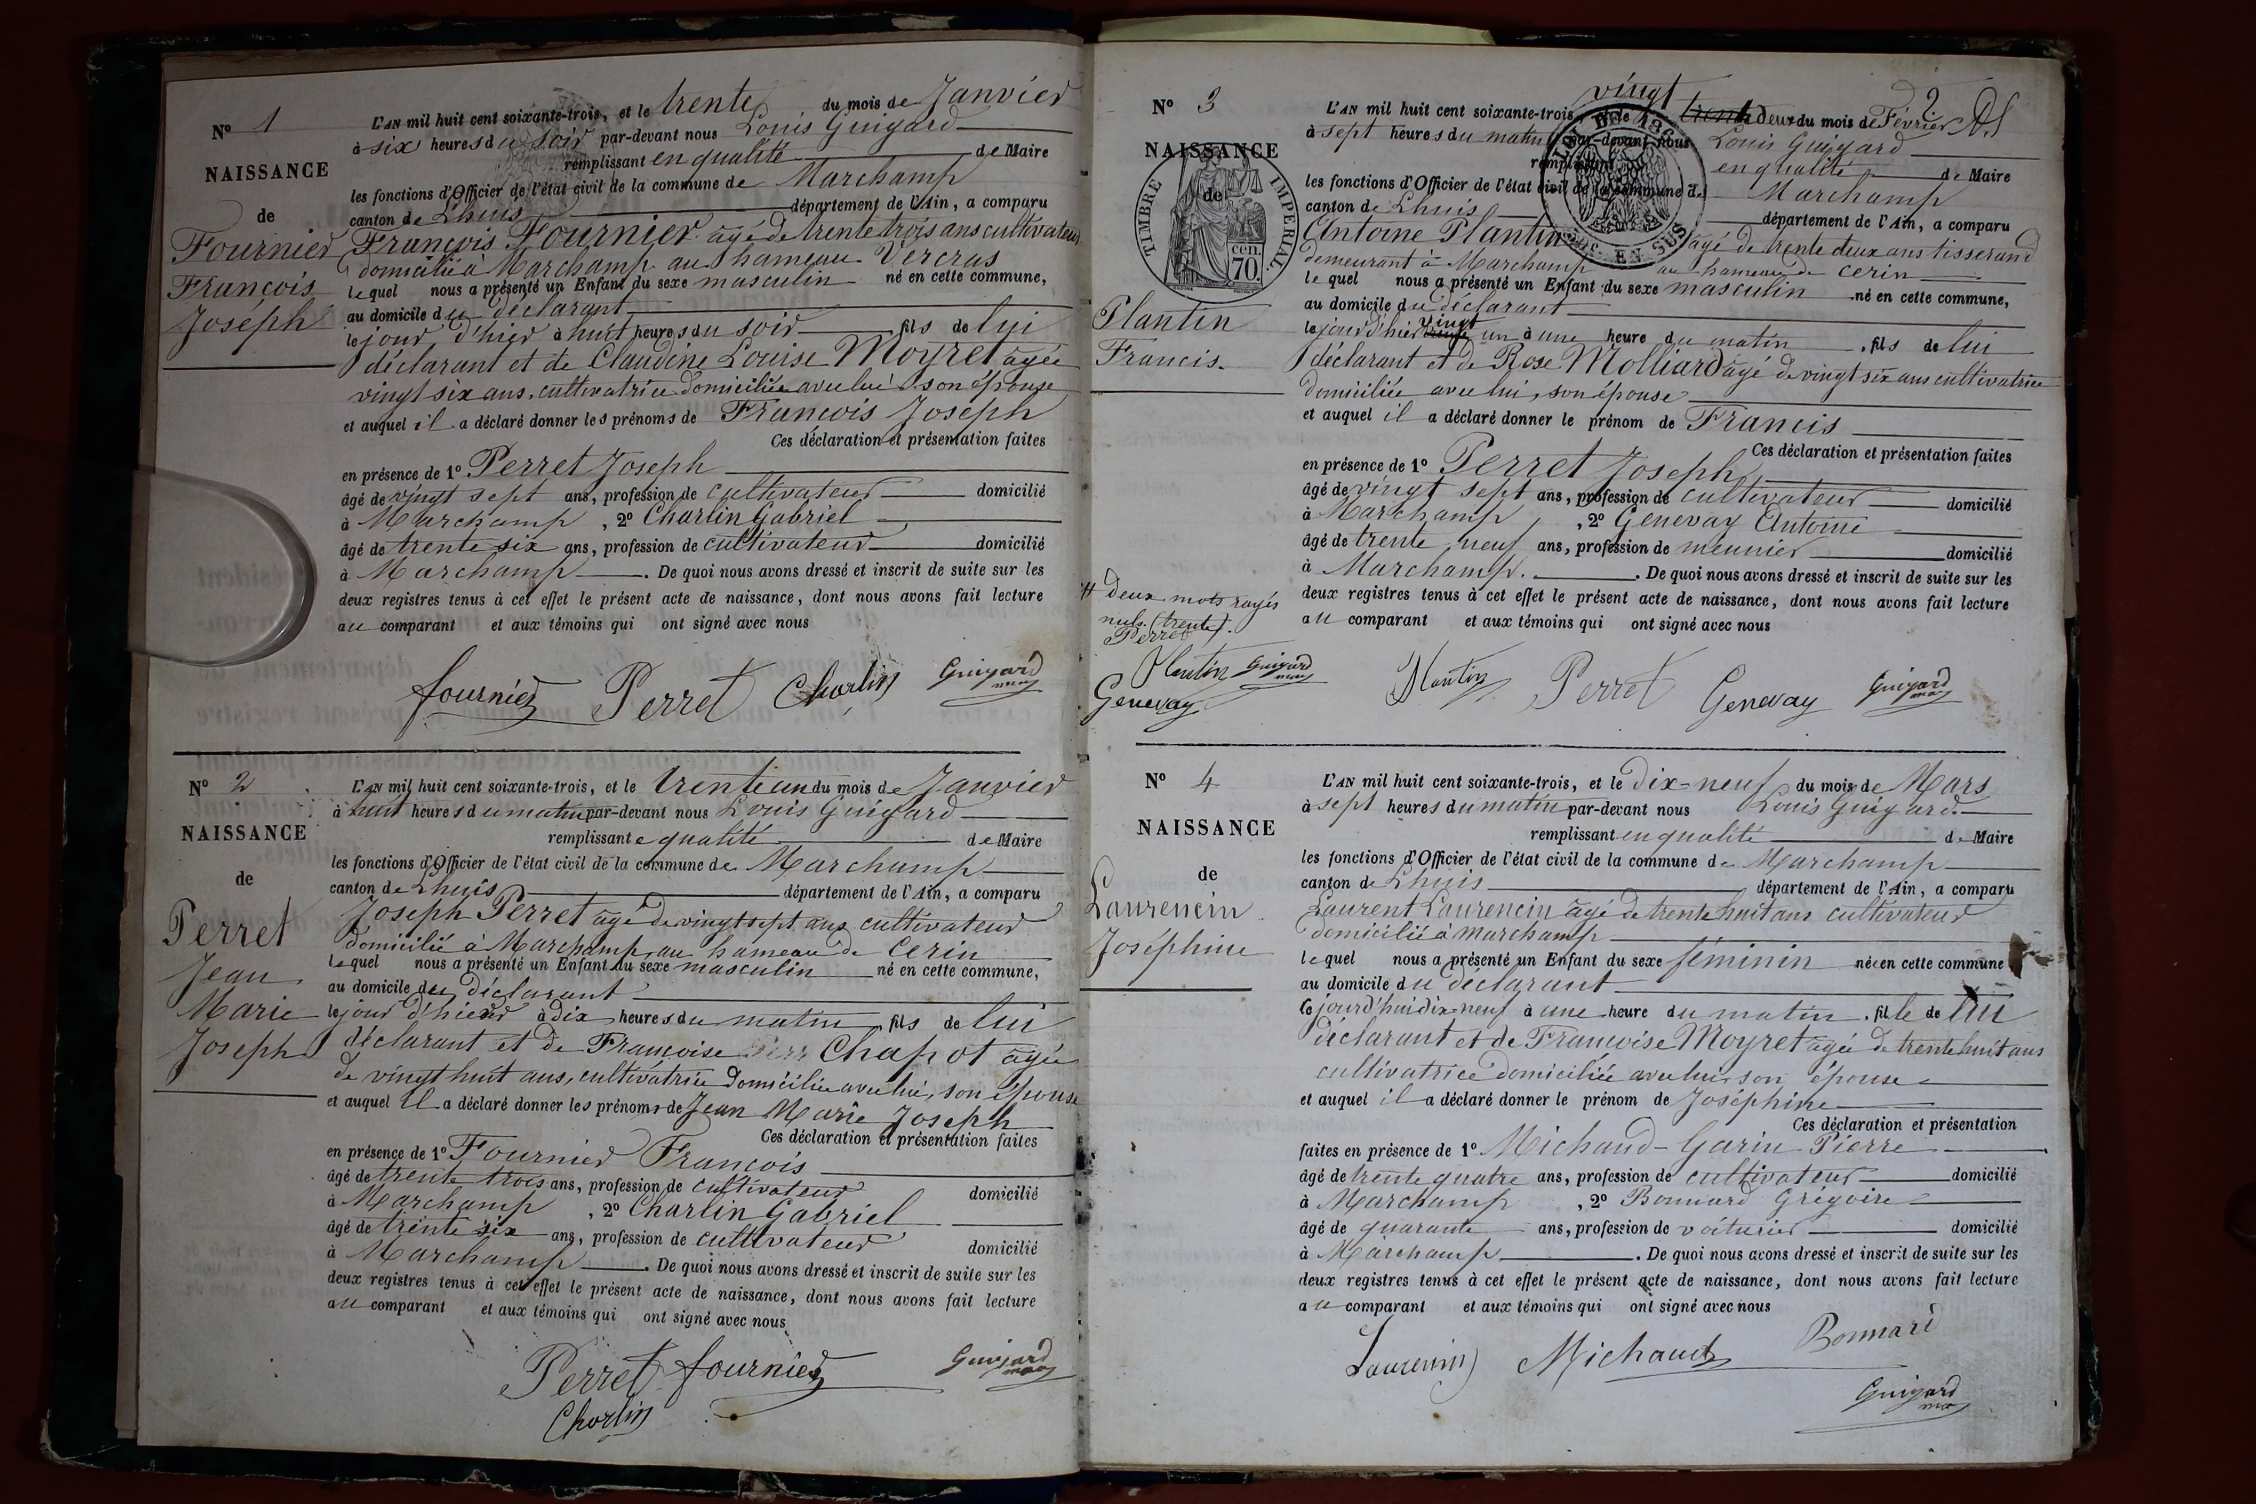 N° 1
NAISSANCE
de
Fournier
François
Joséph
L'AN mil huit cent soixante-trois, et le trente du mois de Janvier
à six heures du soir par-devant nous Louis Guigard
remplissant en qualité de Maire
les fonctions d'Officier de l'état civil de la commune de Marchamp
canton de Lhuis département de l'Ain, a comparu
François Fournier agé de trente trois ans cultivateur
domicilié à Marchamp au hameau Vercras
lequel nous a présenté un Enfant du sexe masculin né en cette commune,
au domicile du déclarant
le jour d'hier à huit heures du soir fils de lui
déclarant et de Claudine Louise Moyret agée
vingt six ans, cultivatrice domiciliée avec lui son épouse
et auquel il a déclaré donner les prénoms de François Joseph
Ces déclaration et présentation faites
en présence de 1° Perret Joseph
âgé de vingt sept ans, profession de cultivateur domicilié
à Marchamp, 2° Charlin Gabriel
âgé de trente six ans, profession de cultivateur domicilié
à Marchamp. De quoi nous avons dressé et inscrit de suite sur les
deux registres tenus à cet effet le présent acte de naissance, dont nous avons fait lecture
au comparant et aux témoins qui ont signé avec nous
fournier Perret Charlin Guigard
N° 2
NAISSANCE
de
Perret
Jean
Marie
Joseph
L'AN mil huit cent soixante-trois, et le trente un du mois de Janvier
à huit heures du matin par-devant nous Louis Guigard
remplissant e qualité de Maire
les fonctions d'Officier de l'état civil de la commune de Marchamp
canton de Lhuis département de l'Ain, a comparu
Joseph Perret agé de vingt sept ans cultivateur
domicilié à Marchamp au hameau de Cerin
lequel nous a présenté un Enfant du sexe masculin né en cette commune,
au domicile du déclarant
le jour d'hier à dix heures du matin, fils de lui
déclarant et de Françoise Chapot agée
de vingt huit ans, cultivatrice domiciliée avec lui, son épouse
et auquel il a déclaré donner les prénoms de Jean Marie Joseph
Ces déclaration et présentation faites
en présence de 1° Fournier François
âgé de trente trois ans, profession de cultivateur domicilié
à Marchamp, 2° Charlin Gabriel
âgé de trente six ans, profession de cultivateur domicilié
à Marchamp. De quoi nous avons dressé et inscrit de suite sur les
deux registres tenus à cet effet le présent acte de naissance, dont nous avons fait lecture
au comparant et aux témoins qui ont signé avec nous
Perret fournier Guigard
Charlin
2
N° 3
NAISSANCE
de
TIMBRE IMPERIAL
cen.
70.
Plantin
Francis.
vingt
L'AN mil huit cent soixante-trois, et le trente deux du mois de Février
à sept heures du matin par-devant nous Louis Guigard
remplissant en qualité de Maire
les fonctions d'Officier de l'état civil de la commune de Marchamp
canton de Lhuis département de l'Ain, a comparu
EN SUS
Antoine Plantin agé de trente deux ans tisserand
demeurant à Marchamp au hameau de cerin
lequel nous a présenté un Enfant du sexe masculin né en cette commune,
au domicile du déclarant
vingt
le jour d'hier trente un à une heure du matin, fils de lui
déclarant et de Rose Molliard agé de vingt six ans cultivatrice
domiciliée avec lui, son épouse
et auquel il a déclaré donner le prénom de Francis
Ces déclaration et présentation faites
en présence de 1° Perret Joseph
âgé de vingt sept ans, profession de cultivateur domicilié
à Marchamp, 2° Genevay Antoine
âgé de trente neuf ans, profession de meunier domicilié
à Marchamp. De quoi nous avons dressé et inscrit de suite sur les
deux registres tenus à cet effet le présent acte de naissance, dont nous avons fait lecture
au comparant et aux témoins qui ont signé avec nous
deux mots rayés
nuls (trente).
Perret
Plantin Guigard
Genevay
Plantin Perret Genevay Guigard
N° 4
NAISSANCE
de
Laurencin
Joséphine
L'AN mil huit cent soixante-trois, et le dix-neuf du mois de Mars
à sept heures du matin par-devant nous Louis Guigard.
remplissant en qualité de Maire
les fonctions d'Officier de l'état civil de la commune de Marchamp
canton de Lhuis département de l'Ain, a comparu
Laurent Laurencin agé de trente huit ans cultivateur
domicilié à Marchamp
lequel nous a présenté un Enfant du sexe féminin née en cette commune
au domicile du déclarant
le jourd'hui dix neuf à une heure du matin, fille de lui
déclarant et de Françoise Moyret agée de trente huit ans
cultivatrice domiciliée avec lui son épouse
et auquel il a déclaré donner le prénom de Joséphine
Ces déclaration et présentation
faites en présence de 1° Michaud-Garin Pierre
âgé de trente quatre ans, profession de cultivateur domicilié
à Marchamp, 2° Bonnard Grégoire
âgé de quarante ans, profession de voiturier domicilié
à Marchamp. De quoi nous avons dressé et inscrit de suite sur les
deux registres tenus à cet effet le présent acte de naissance, dont nous avons fait lecture
au comparant et aux témoins qui ont signé avec nous
Laurencin Michaud Bonnard
Guigard